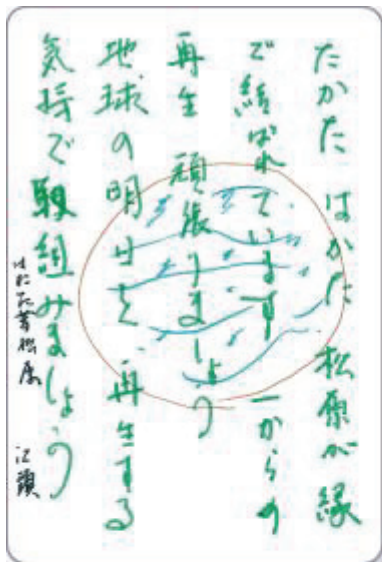 たかた はかた 松原が縁
で結ばれています 一からの
再生 頑張りましょう
地球の明日を 再生する
気持で取組みましょう
はかた 松原 江頭